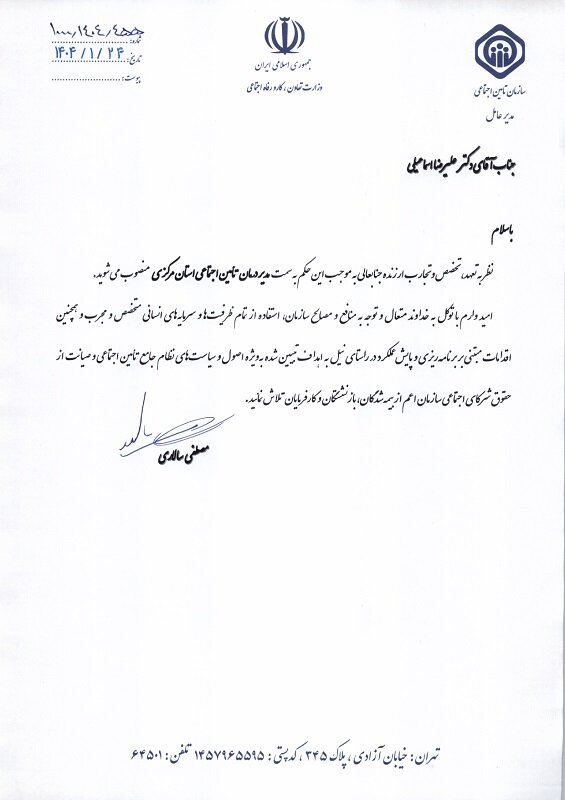 جمهوری اسلامی ایران
وزارت تعاون، کار و رفاه اجتماعی
سازمان تامین اجتماعی
مدیر عامل
شماره:
تاریخ: ۱۴۰۴/۱/۲۴
پیوست:
جناب آقای دکتر علیرضا اسماعیلی
با سلام
نظر به تعهد، تخصص و تجارب ارزنده جنابعالی به موجب این حکم به سمت مدیر درمان تامین اجتماعی استان مرکزی منصوب می شوید.
امید وارم با توکل به خداوند متعال و توجه به منافع و مصالح سازمان، استفاده از تمام ظرفیت ها و سرمایه های انسانی متخصص و مجرب و همچنین
اقدامات مبتنی بر برنامه ریزی و پایش عملکرد در راستای نیل به اهداف تبیین شده به ویژه اصول و سیاست های نظام جامع تامین اجتماعی و صیانت از
حقوق شرکای اجتماعی سازمان اعم از بیمه شدگان، بازنشستگان و کارفرمایان تلاش نمایید.
مصطفی سالاری
تهران: خیابان آزادی، پلاک ۳۴۵، کدپستی: ۱۴۵۷۹۶۵۵۹۵ تلفن: ۶۴۵۰۱